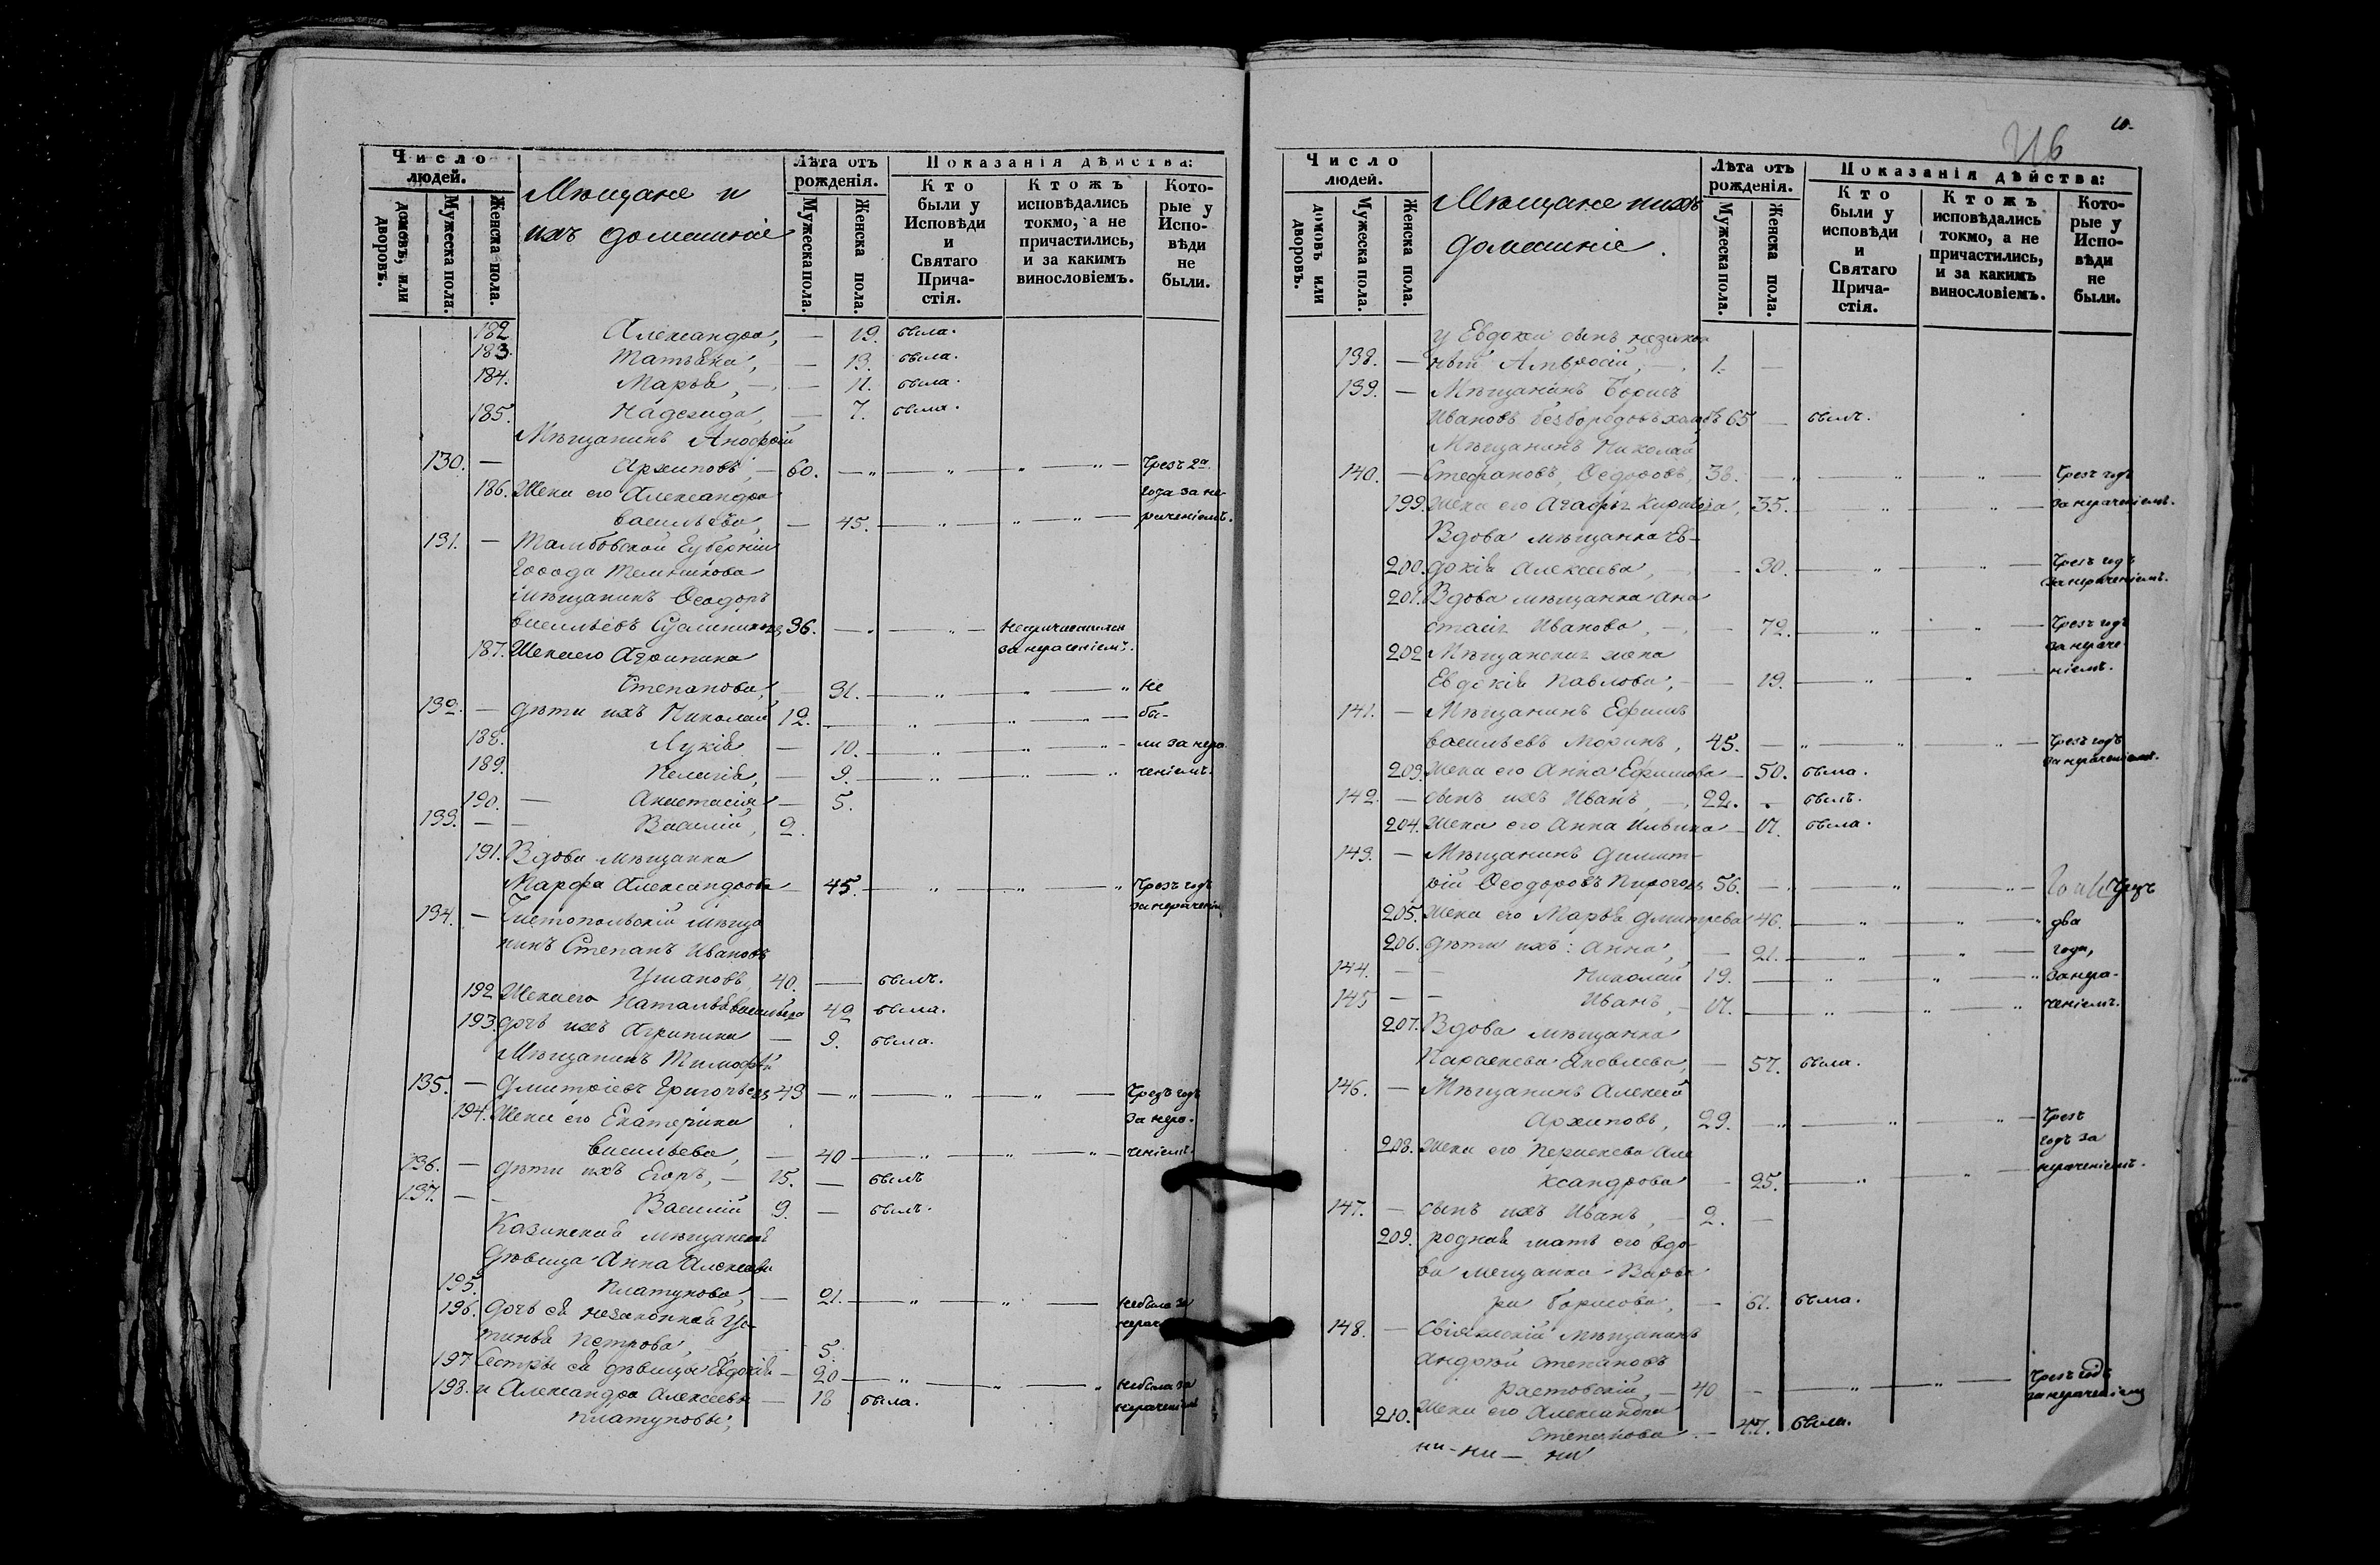 Число людей.
домовъ, или дворовъ.
Мужеска пола.
Женска пола.
Мѣщане и
ихъ домашніе
Лѣта отъ рожденія.
Мужеска пола.
Женска пола.
Показанія дѣйства:
Кто были у Исповѣди и Святаго Прича-стія.
Ктожъ исповѣдались токмо, а не причастились, и за какимъ винословіемъ.
Кото-рые у Испо-вѣди не были.
182 Александра, — 19. была.
183. Татьяна, — 13. была.
184. Марья, — — 11. была.
185. Надежда, — 7. была.
Мѣщанинъ
130. — Архиповъ, — 60. — „ — „ — „ — „ — Чрезъ 2а
186. Жена его Александра года за не-
Васильева, — 45. — „ — „ — „ — раченіемъ.
131. — Тамбовской Губерніи
Города Темникова
мѣщанинъ Ѳеодоръ
Васильевъ 36. — „ — „ — непричастился
187. Жена его Агрипина за нераченіемъ.
Степанова, 31. — „ — „ — „ не
132. — дѣти ихъ Николай 12. — „ — „ — „ — бы-
188. Лукія — 10. — „ — „ — „ — ли за нера-
189. Пелагія, — 9. — „ — „ — „ ченіемъ.
190. — Анастасія — 5.
133. — — Василій, 2.
191. Вдова мѣщанка
Марфа Александрова — 45. — „ — „ — „ Чрезъ годъ
за нераченіем
134. — Чистопольскій мѣща
нинъ Степанъ Ивановъ
Ушаковъ, 40. — былъ.
192 Жена его Наталья Васильева 42 была.
193. дочь ихъ Агрипина — 9. была.
Мѣщанинъ Тимофѣй
135. — Дмитріевъ 43 — „ — „ — „ — Чрезъ годъ
194. Жена его Екатерина за нера-
Васильева, — 40 — „ — „ — „ — ченіемъ.
136. — дѣти ихъ Егоръ, — 15. — былъ
137. — — Василій 9. — былъ.
Казанская мѣщанская
дѣвица Анна Алексѣева
195. Платунова, — 21. — „ — „ — небыла за
196. дочь ея незаконная Ус- нерач
тинья Петрова, — 5.
197 Сестры ея дѣвицы Евдокія — 20 — „ — „ — „ небыла за
198. и Александра Алексѣевы — 18 была. нераченіемъ
Платуновы,
10.
Число людей.
домовъ или дворовъ.
Мужеска пола.
Женска пола.
Мѣщане и ихъ
домашніе.
Лѣта отъ рожденія.
Мужеска пола.
Женска пола.
Показанія дѣйства:
Кто были у исповѣди и Святаго Прича-стія.
Ктожъ исповѣдались токмо, а не причастились, и за какимъ винословіемъ.
Кото-рые у Испо-вѣди не были.
у Евдокіи сынъ незакон
138. — ный Амвросій, — 1. —
139. — Мѣщанинъ Борисъ
Ивановъ 65 — былъ.
Мѣщанинъ Николай
140. — Стефановъ, Ѳедоровъ, 38. — „ — „ — „ — Чрезъ годъ
199. Жена его Агафья 35. — „ — за нераченіемъ.
Вдова мѣщанка Ев-
200. докія Алексеева, — 30. — „ — „ — Чрезъ годъ
за нераченіемъ.
201. Вдова мѣщанка Ана
стасія Иванова, — 72. — „ — „ — Чрезъ годъ
202 Мѣщанская жена за нераче-
Евдокія Павлова, — 19. — „ — „ — ніемъ.
141. — Мѣщанинъ Ефимъ
Васильевъ Моринъ, 45. — „ — „ — „ — Чрезъ годъ
203. Жена его Анна Ефимова — 50. была. за нераченіемъ.
142. — сынъ ихъ Иванъ, — 22. былъ.
204. Жена его Анна Ильина — 17. была.
143. — Мѣщанинъ Димит-
рій Ѳеодоровъ 56. — „ — „ — „ — Чрезъ
205. Жена его Марья Дмитрева 46. — „ — „ — „ два
206. дѣти ихъ: Анна, — 21. — „ — „ — года,
144. — — Николай 19. — „ — „ — „ за нера-
145 — — Иванъ, — 17. — „ — „ — „ ченіемъ.
207. Вдова мѣщанка
Параскева Яковлева, — 57. была.
146. — Мѣщанинъ Алексѣй
Архиповъ, 29. — „ — „ — „ — Чрезъ
208. Жена его Параскева Але годъ за
ксандрова — 25. — „ — „ — нераченіемъ.
147. — сынъ ихъ Иванъ, — 2. —
209. родная мать его вдо-
ва мещанка Варва
ра Борисова, — 61. была.
148. — Свіяжскій мѣщанинъ
Андрей Степановъ
Растовскій, — 40 — — „ — „ — Чрезъ годъ
210. Жена его Александра за нераченіемъ
Степанова — 47. была.